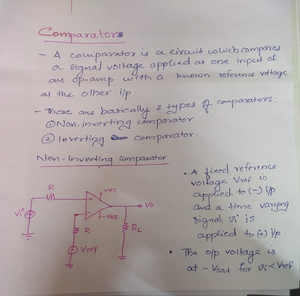 Comparators
- A comparator is a circuit which compares
a signal voltage applied at one input of
an op-amp with a known reference voltage
at the other i/p
- There are basically 2 types of comparators:
① Non-inverting comparator
② Inverting comparator.
Non-Inverting comparator
• A fixed reference
voltage Vref is
applied to (-) i/p
and a time varying
signal Vi is
applied to (+) i/p.
• The o/p voltage is
at -Vsat for Vi < Vref
R
Vi
R
Vref
Vo
RL